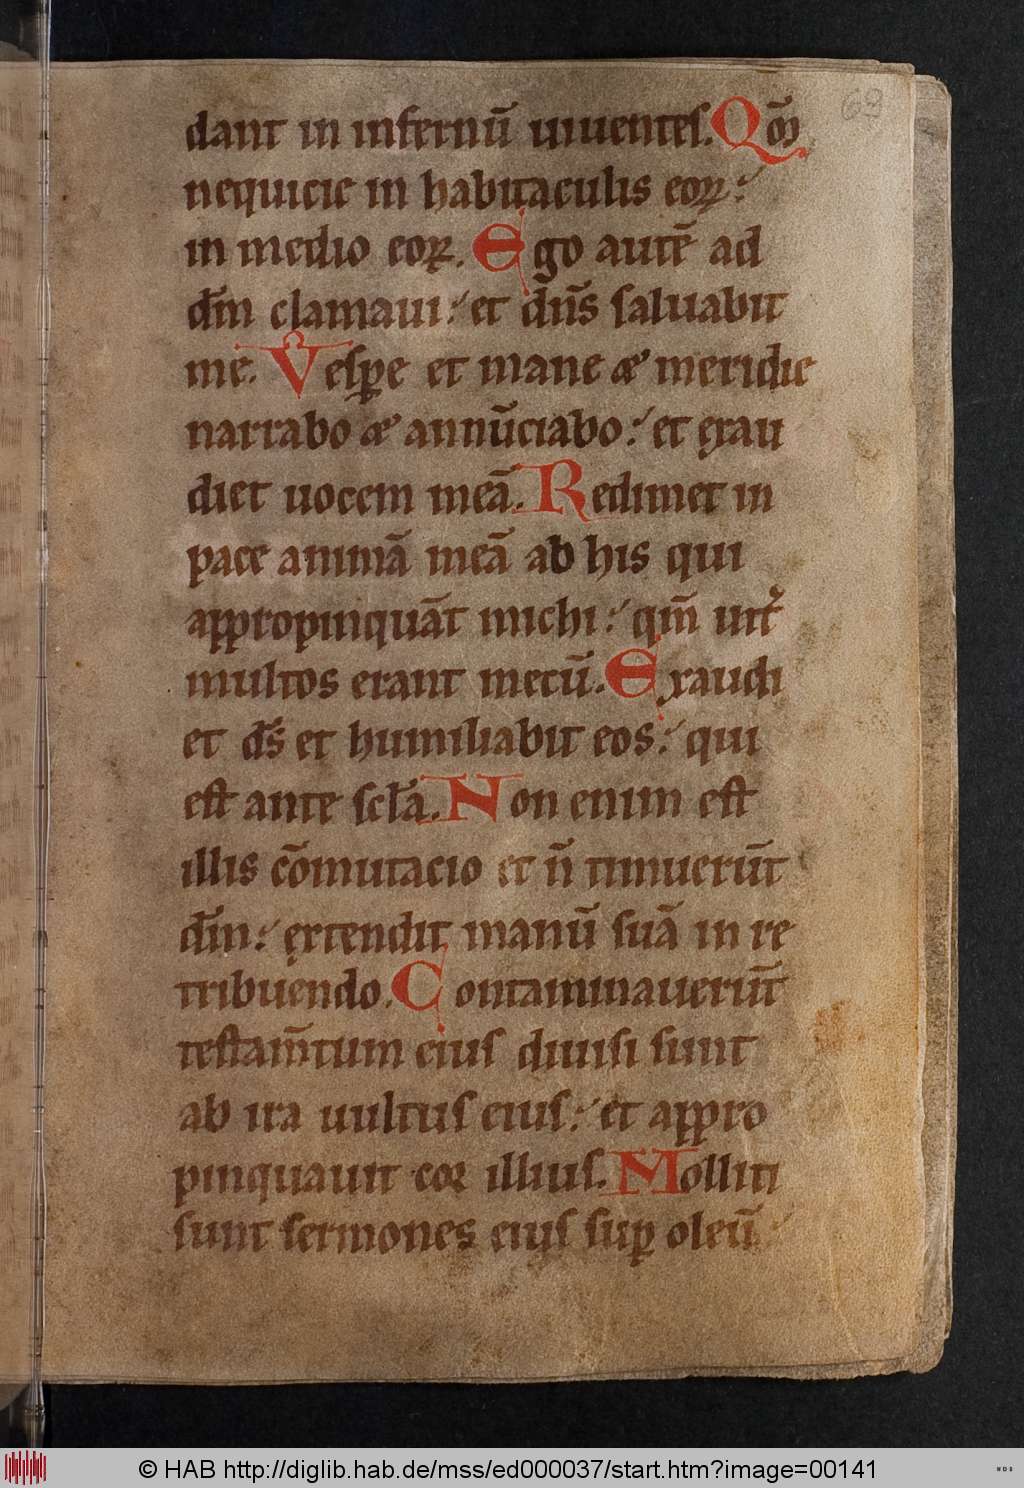 dant in infernū uiuentes. Qm̄
nequicie in habitaculis eoꝝ:
in medio eoꝝ. Ego autē ad
dm̄ clamaui: et dn̄s saluabit
me. Vesꝑe et mane & meridie
narrabo & annūciabo: et exau
diet uocem meā. Redimet in
pace animā meā ab his qui
appropinquāt michi: qm̄ int̛
multos erant mecū. Exaudi
et ds̄ et humiliabit eos: qui
est ante scl̄a. Non enim est
illis cōmutacio et n̄ timuerūt
dm̄: extendit manū suā in re
tribuendo. Contaminauerūt
testam̄tum eius diuisi sunt
ab ira uultus eius: et appro
pinquauit cor illius. Molliti
sunt sermones eius suꝑ oleū:
69
© HAB http://diglib.hab.de/mss/ed000037/start.htm?image=00141